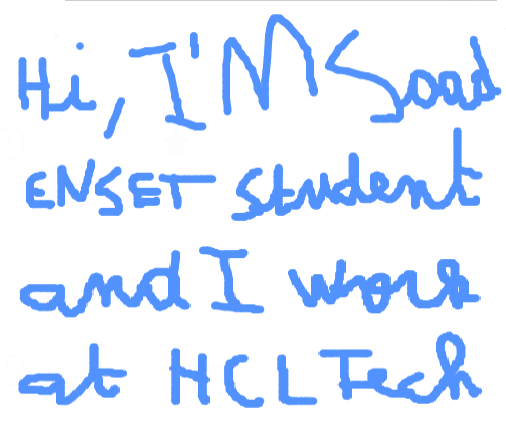 Hi, I'M Soad
ENSET student
and I work
at HCLTech